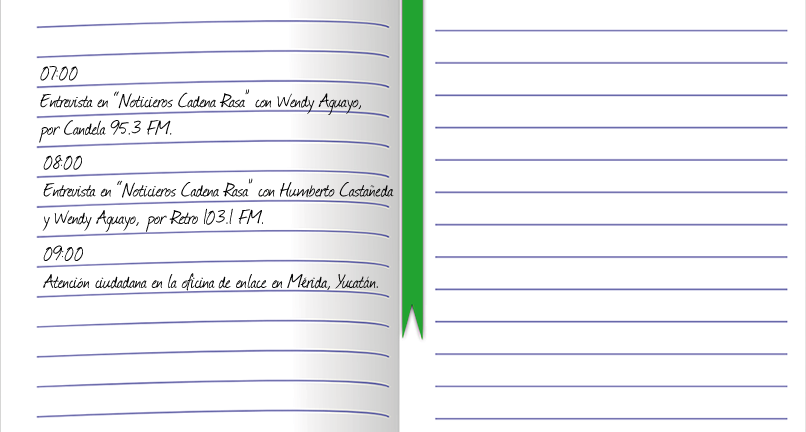 07:00
Entrevista en "Noticieros Cadena Rasa" con Wendy Aguayo,
por Candela 95.3 FM.
08:00
Entrevista en "Noticieros Cadena Rasa" con Humberto Castañeda
y Wendy Aguayo, por Retro 103.1 FM.
09:00
Atención ciudadana en la oficina de enlace en Mérida, Yucatán.